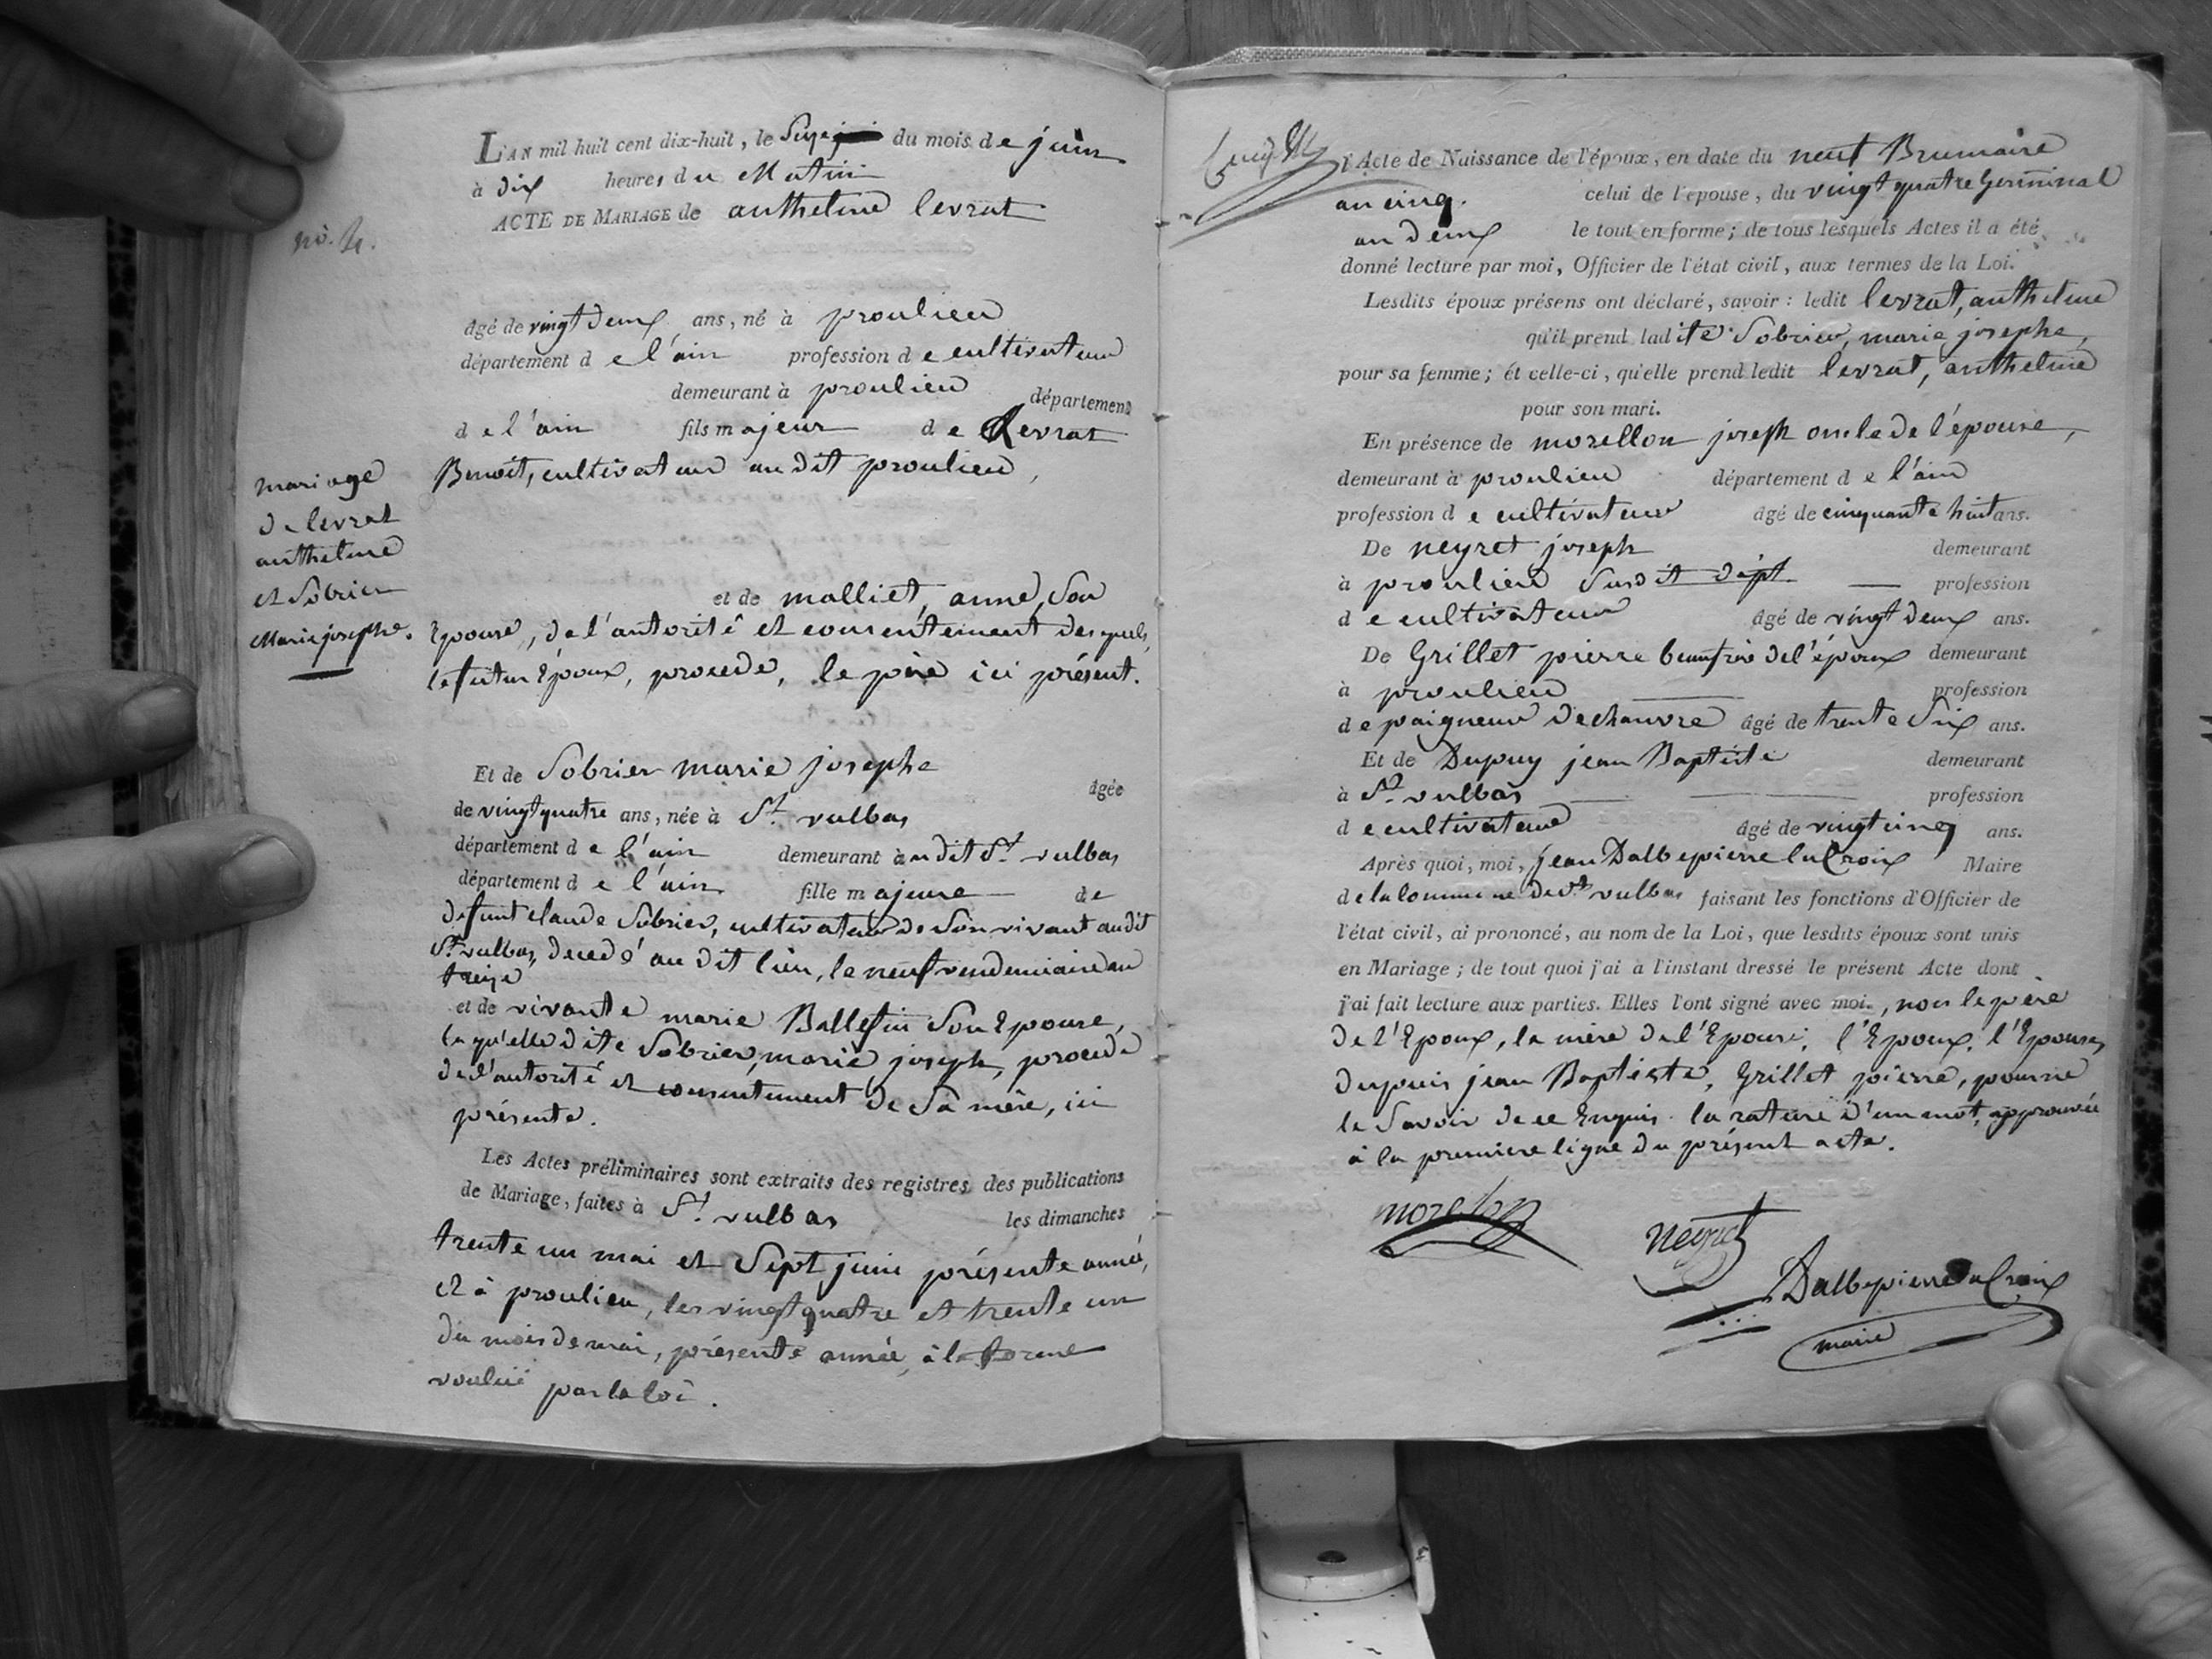 L'AN mil huit cent dix-huit, le Seize du mois de juin
à dix heures du Matin
ACTE DE MARIAGE de anthelme levrat
no. 4.
âgé de vingt deux ans, né à proulieu
département de l'ain profession de cultivateur
demeurant à proulieu département
de l'ain fils majeur de Levrat
Benoit, cultivateur au dit proulieu,
mariage
de levrat
anthelme
et Sobrier
Marie josephe.
et de malliet, anne, Son
Epouse, de l'autorité et consentement desquels,
le futur Epoux, procede, le père ici présent.
Et de Sobrier marie josephe âgée
de vingt quatre ans, née à St. vulbas
département de l'ain demeurant audit St. vulbas
département de l'ain fille majeure de
defunt claude Sobrier, cultivateur de Son vivant audit
St. vulbas, decedé au dit lieu, le neuf vendemiaire an
treize
et de vivante marie Ballefin Son Epouse,
laqu'elle dite Sobrier, marie joseph, procede
de l'autorité et consentement de Sa mère, ici
présente.
Les Actes préliminaires sont extraits des registres des publications
de Mariage, faites à St. vulbas les dimanches
trente un mai et Sept juin présente année,
et à proulieu, les vingt quatre et trente un
du mois de mai, présente année, à la forme
voulue par la loi.
l'Acte de Naissance de l'époux, en date du neuf Brumaire
an cinq. celui de l'épouse, du vingt quatre Germinal
an deux le tout en forme; de tous lesquels Actes il a été
donné lecture par moi, Officier de l'état civil, aux termes de la Loi.
Lesdits époux présens ont déclaré, savoir: ledit levrat, anthelme
qu'il prend ladite Sobrier, marie josephe,
pour sa femme; et celle-ci, qu'elle prend ledit levrat, anthelme
pour son mari.
En présence de morellon joseph oncle de l'épouse,
demeurant à proulieu département de l'ain
profession de cultivateur âgé de cinquante huit ans.
De neyret joseph demeurant
à proulieu Susdit dépt. profession
de cultivateur âgé de vingt deux ans.
De Grillet pierre beaufrère de l'époux demeurant
à proulieu profession
de paigneur de chanvre âgé de trente Six ans.
Et de Dupuy jean Baptiste demeurant
à St. vulbas profession
de cultivateur âgé de vingt cinq ans.
Après quoi, moi, jean Dalbepierre la Croix Maire
de la Commune de St. vulbas faisant les fonctions d'Officier de
l'état civil, ai prononcé, au nom de la Loi, que lesdits époux sont unis
en Mariage; de tout quoi j'ai à l'instant dressé le présent Acte dont
j'ai fait lecture aux parties. Elles l'ont signé avec moi., non le père
de l'Epoux, la mère de l'Epouse, l'Epoux, l'Epouse,
dupuis jean Baptiste, Grillet pierre, pour ne
le Savoir de ce Enquis. la rature d'un mot, approuvée
à la premiere ligne du présent acte.
morellon
Neyret
Dalbepierre la Croix
maire